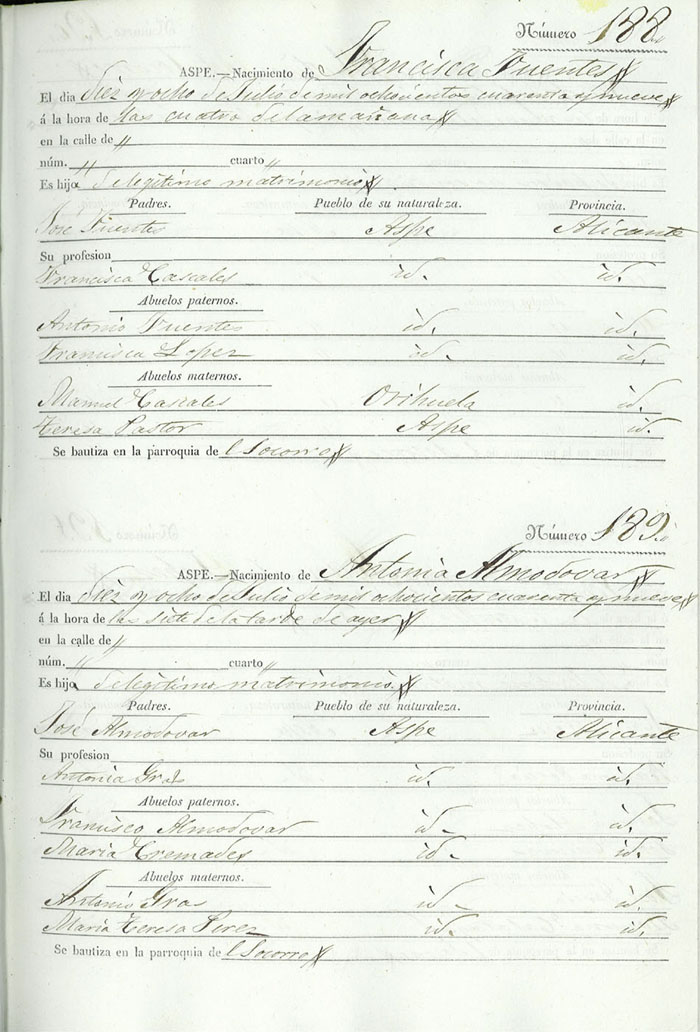 Número 188.
ASPE.—Nacimiento de Francisca Fuentes
El dia diez y ocho de Julio de mil ochocientos cuarenta y nueve
á la hora de las cuatro de la mañana
en la calle de "
núm. " cuarto "
Es hija de legítimo matrimonio
Padres. Pueblo de su naturaleza. Provincia.
José Fuentes Aspe Alicante
Su profesion
Francisca Cascales id. id.
Abuelos paternos.
Antonio Fuentes id. id.
Francisca Lopez id. id.
Abuelos maternos.
Manuel Cascales Orihuela id.
Teresa Pastor Aspe id.
Se bautiza en la parroquia de l Socorro
Número 189.
ASPE.—Nacimiento de Antonia Almodovar
El dia diez y ocho de Julio de mil ochocientos cuarenta y nueve
á la hora de las siete de la tarde de ayer
en la calle de "
núm. " cuarto "
Es hija de legítimo matrimonio
Padres. Pueblo de su naturaleza. Provincia.
José Almodovar Aspe Alicante
Su profesion
Antonia Gras id. id.
Abuelos paternos.
Francisco Almodovar id. id.
Maria Cremades id. id.
Abuelos maternos.
Antonio Gras id. id.
Maria Teresa Perez id. id.
Se bautiza en la parroquia de l Socorro